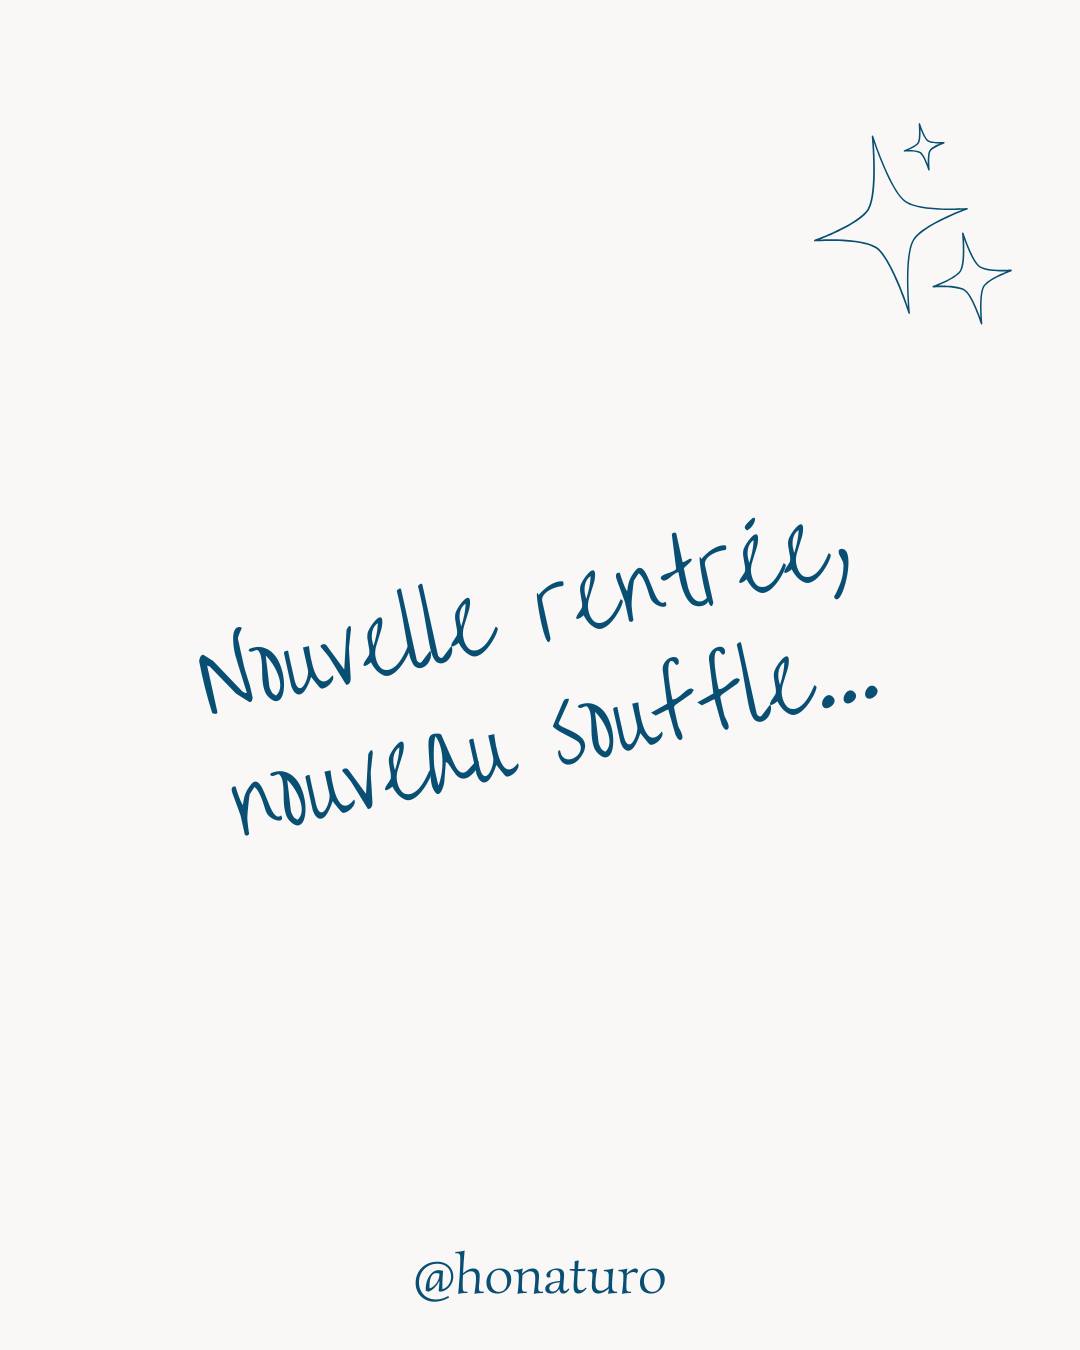 Nouvelle rentrée,
nouveau souffle...
@honaturo